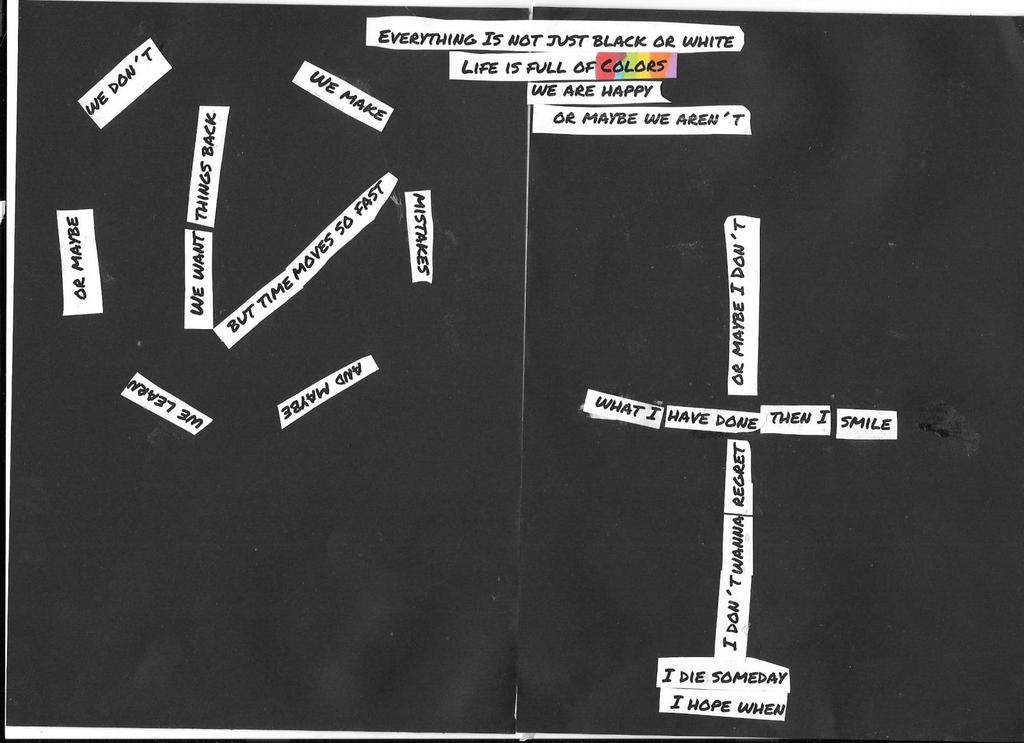 EVERYTHING IS NOT JUST BLACK OR WHITE
LIFE IS FULL OF COLORS
WE ARE HAPPY
OR MAYBE WE AREN'T
WE MAKE
MISTAKES
AND MAYBE
WE LEARN
OR MAYBE
WE DON'T
WE WANT
THINGS BACK
BUT TIME MOVES SO FAST
I HOPE WHEN
I DIE SOMEDAY
I DON'T WANNA
REGRET
WHAT I HAVE DONE THEN I SMILE
OR MAYBE I DON'T